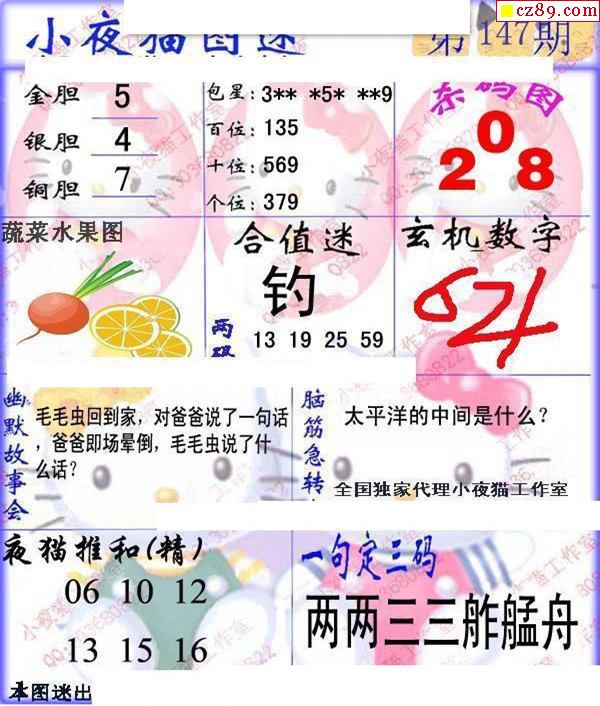 cz89.com
小夜猫图迷
第147期
金胆 5
银胆 4
铜胆 7
包星: 3** *5* **9
百位: 135
十位: 569
个位: 379
杀码图
2 0 8
蔬菜水果图
合值迷
钓
两码
13 19 25 59
玄机数字
幽默故事会
毛毛虫回到家，对爸爸说了一句话
，爸爸即场晕倒，毛毛虫说了什
么话？
脑筋急转
太平洋的中间是什么？
全国独家代理小夜猫工作室
夜猫推和(精)
06 10 12
13 15 16
一句定三码
两两三三舴艋舟
本图迷出